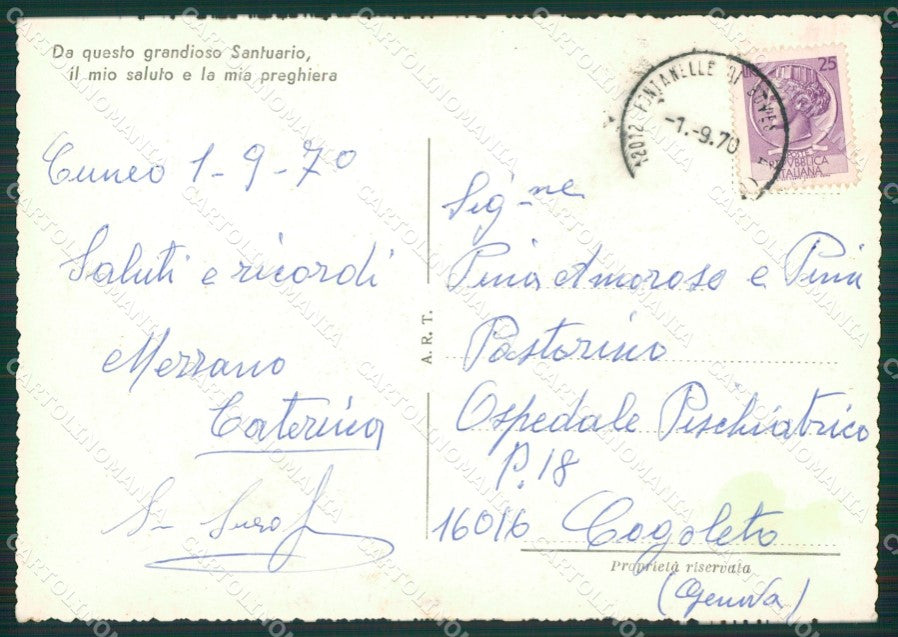 Da questo grandioso Santuario,
il mio saluto e la mia preghiera
Cuneo 1-9-70
Saluti e ricordi
Merrano
Caterina
12012 FONTANELLE DI BOVES
-1.-9.70
25
REPUBBLICA
ITALIANA
Sig-ne
Pina Amoroso e Pina
Pastorino
Ospedale Psichiatrico
P. 18
16016 Cogoleto
(Genova)
A. R. T.
Proprietà riservata
CARTOLINOMANIA